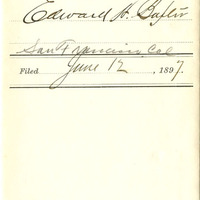 Edward H. Baxter
San Francisco, Cal
Filed June 12, 1897.